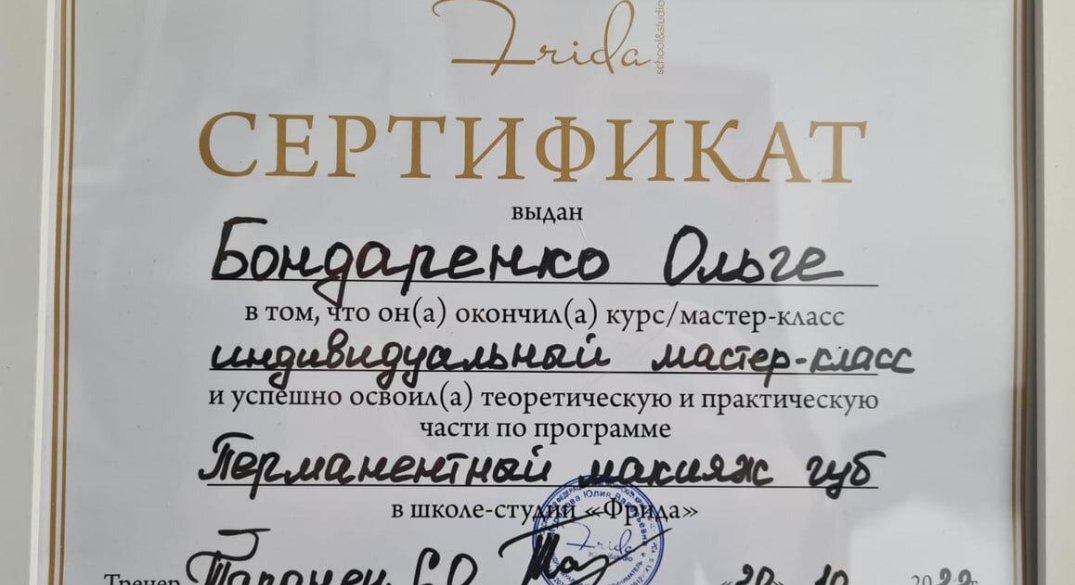 Frida
school&studio
СЕРТИФИКАТ
выдан
Бондаренко Ольге
в том, что он(а) окончил(а) курс/мастер-класс
индивидуальный мастер-класс
и успешно освоил(а) теоретическую и практическую
части по программе
Перманентный макияж губ
в школе-студии «Фрида»
Тренер